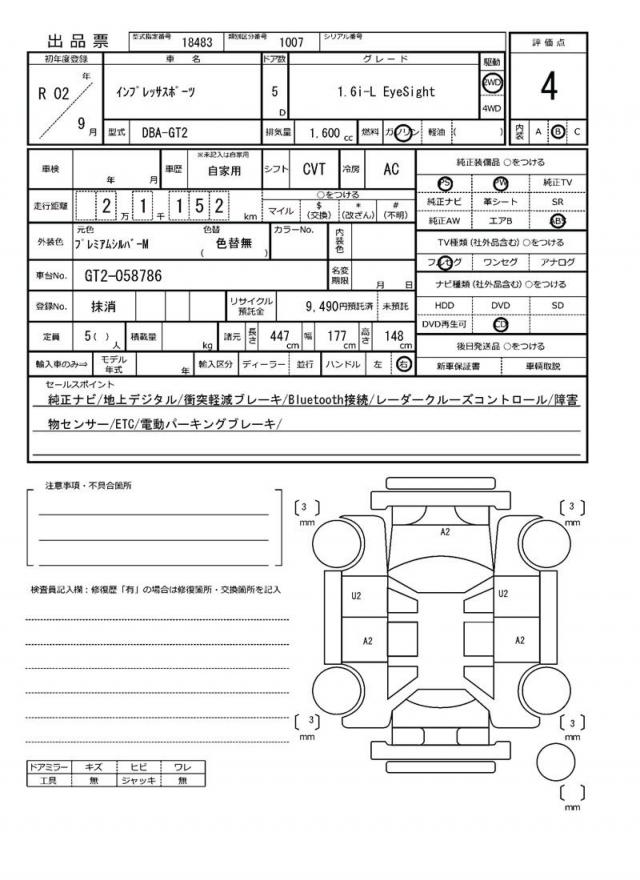 出品票 型式指定番号 18483 類別区分番号 1007 シリアル番号
評価点
4
初年度登録 車名 ドア数 グレード 駆動
R 02 年 9 月 インプレッサスポーツ 5 D 1.6i-L EyeSight 2WD 4WD
型式 DBA-GT2 排気量 1,600 cc 燃料 ガソリン 軽油 ( ) 内装 A B C
車検 年 月 車歴 ※未記入は自家用 自家用 シフト CVT 冷房 AC
走行距離 2 万 1 千 1 5 2 km ○をつける マイル $ (交換) * (改ざん) # (不明)
外装色 元色 プレミアムシルバーM 色替 ( 色替無 ) カラーNo. 内装色
車台No. GT2-058786 名変期限 月 日
登録No. 抹消 リサイクル預託金 9,490円預託済 未預託
定員 5( ) 人 積載量 kg 諸元 長さ 447 cm 幅 177 cm 高さ 148 cm
輸入車のみ⇒ モデル年式 年 輸入区分 ディーラー 並行 ハンドル 左 右
純正装備品 ○をつける
PS PW 純正TV
純正ナビ 革シート SR
純正AW エアB ABS
TV種類(社外品含む)○をつける
フルセグ ワンセグ アナログ
ナビ種類(社外品含む)○をつける
HDD DVD SD
DVD再生可 CD
後日発送品 ○をつける
新車保証書 車輌取説
セールスポイント
純正ナビ/地上デジタル/衝突軽減ブレーキ/Bluetooth接続/レーダークルーズコントロール/障害
物センサー/ETC/電動パーキングブレーキ/
注意事項・不具合箇所
検査員記入欄：修復歴「有」の場合は修復箇所・交換箇所を記入
ドアミラー キズ ヒビ ワレ
工具 無 ジャッキ 無
[ 3 ] mm
[ 3 ] mm
A2
U2 U2
A2 A2
[ 3 ] mm
[ 3 ] mm
[ ] mm